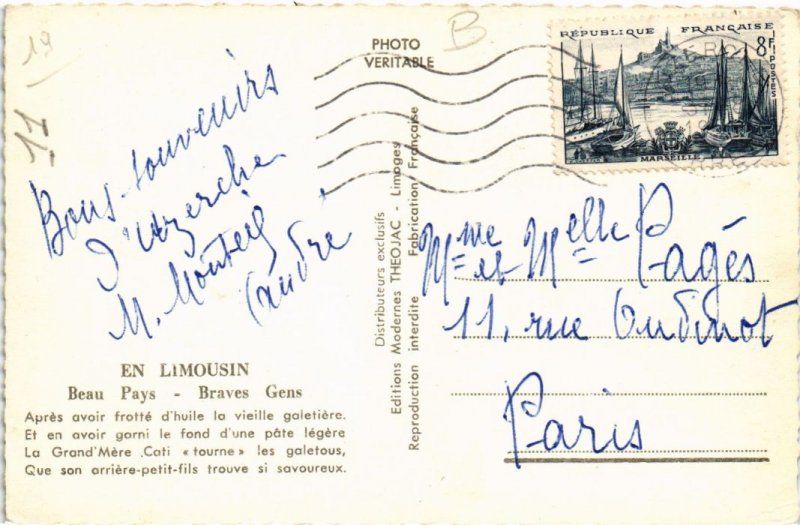 19
11
B
PHOTO
VERITABLE
RÉPUBLIQUE FRANÇAISE
8F
POSTES
MARSEILLE
Bons souvenirs
d'Uzerche
M. Monteil
André
Distributeurs exclusifs
Editions Modernes THEOJAC - Limoges
Reproduction interdite Fabrication Française
Mme et Melle Pagès
11, rue Oudinot
Paris
EN LIMOUSIN
Beau Pays - Braves Gens
Après avoir frotté d'huile la vieille galetière.
Et en avoir gorni le fond d'une pâte légère
La Grand'Mère Cati « tourne » les galetous,
Que son arrière-petit-fils trouve si savoureux.